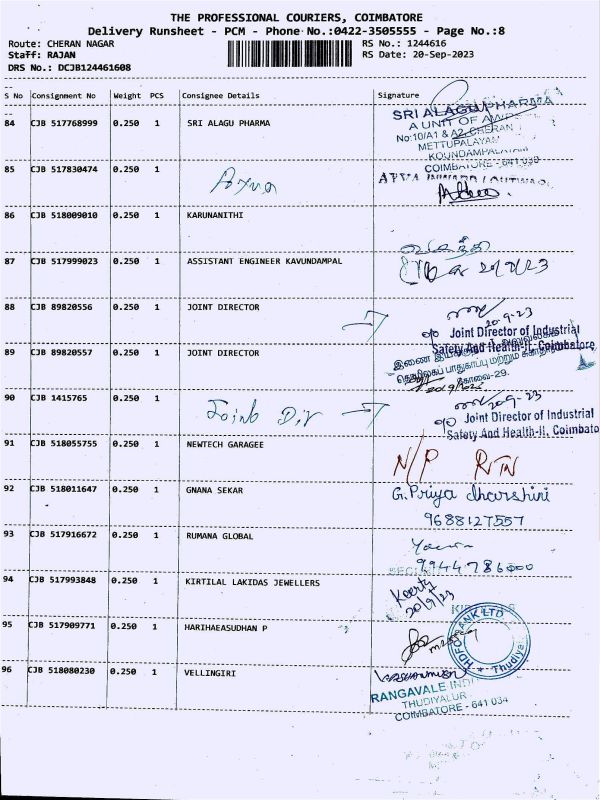 THE PROFESSIONAL COURIERS, COIMBATORE
Delivery Runsheet - PCM - Phone No.:0422-3505555 - Page No.:8
Route: CHERAN NAGAR RS No.: 1244616
Staff: RAJAN RS Date: 20-Sep-2023
DRS No.: DCJB124461608
S No Consignment No Weight PCS Consignee Details Signature
84 CJB 517768999 0.250 1 SRI ALAGU PHARMA
SRI ALAGU PHARMA
A UNIT OF
No:10/A1 & A2, CHERAN
METTUPALAYAM
COIMBATORE - 641 030
85 CJB 517830474 0.250 1
86 CJB 518009010 0.250 1 KARUNANITHI
87 CJB 517999023 0.250 1 ASSISTANT ENGINEER KAVUNDAMPAL
88 CJB 89820556 0.250 1 JOINT DIRECTOR
20-9-23
o/o Joint Director of Industrial
Safety And Health-II, Coimbatore
89 CJB 89820557 0.250 1 JOINT DIRECTOR
இணை
பாதுகாப்பு மற்றும்
கோவை-29.
90 CJB 1415765 0.250 1 Joint Dir
20-9-23
o/o Joint Director of Industrial
Safety And Health-II, Coimbato
91 CJB 518055755 0.250 1 NEWTECH GARAGEE N/P RTN
92 CJB 518011647 0.250 1 GNANA SEKAR G. Priya dharshini
9688127557
93 CJB 517916672 0.250 1 RUMANA GLOBAL
9944786000
94 CJB 517993848 0.250 1 KIRTILAL LAKIDAS JEWELLERS
20/9/23
95 CJB 517909771 0.250 1 HARIHAEASUDHAN P
HDFC BANK LTD
Thudiya
96 CJB 518080230 0.250 1 VELLINGIRI
RANGAVALE INDI
THUDIYALUR
COIMBATORE - 641 034